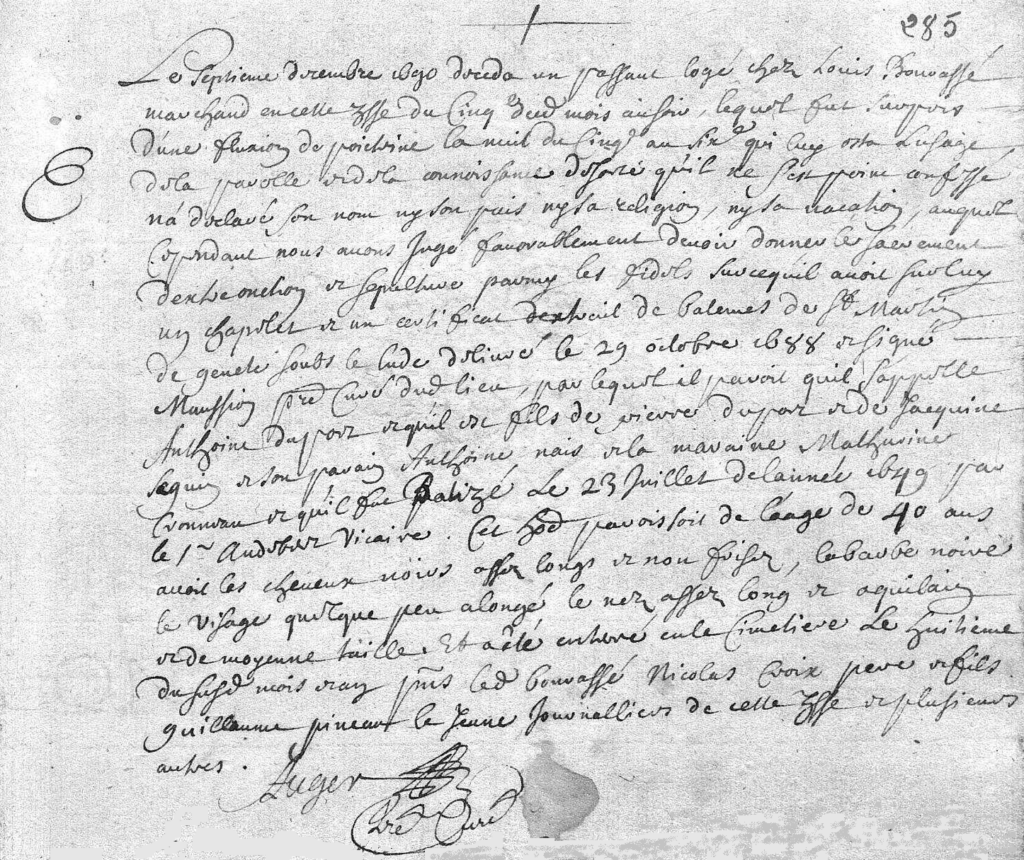 285
Le Septieme decembre 1690 deceda un passant logé chez Louis Bourassé
marchand en cette psse du Cinq dud mois au soir, lequel fut surpris
d'une fluxion de poictrine la nuit du Cinq au six qui luy osta Lusage
dela parolle et dela connoissance desorte qu'il ne s'est point confessé
n'a declaré son nom ny son païs ny sa religion, ny sa vacation, auquel
Cependant nous avons Jugé favorablement devoir donner le sacrement
dextreonction et sepulture parmy les fidels surcequil avoit sur luy
un chapelet et un certificat dextrait de batemes de St Martin
de genete soubs le lude delivré le 29 octobre 1688 et signé
Maussion pre Curé dud lieu, par lequel il paroit quil sappelle
Anthoine duport et qu'il est fils de pierre duport et de Jacquine
sequin et son parain Anthoine nais et la maraine Mathurine
Cronneau et qu'il fut Batizé Le 23 Juillet de lannée 1649 par
le Sr Audeber Vicaire. Cet hoe paroissoit de l'aage de 40 ans
avoit les cheveux noirs assez longs et non frisez, la barbe noire
le visage quelque peu alongé le nez assez long et aquilain
et de moyenne taille. Et a été enterré en le Cimetiere Le huitieme
du susd mois et an pnts led bourassé Nicolas Croix pere et fils
guillaume pineau le Jeune Journalliers de cette psse et plusieurs
autres.
Auger
Pre Curé